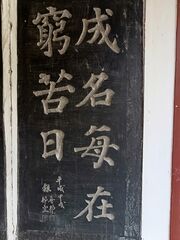 成名每在
窮苦日